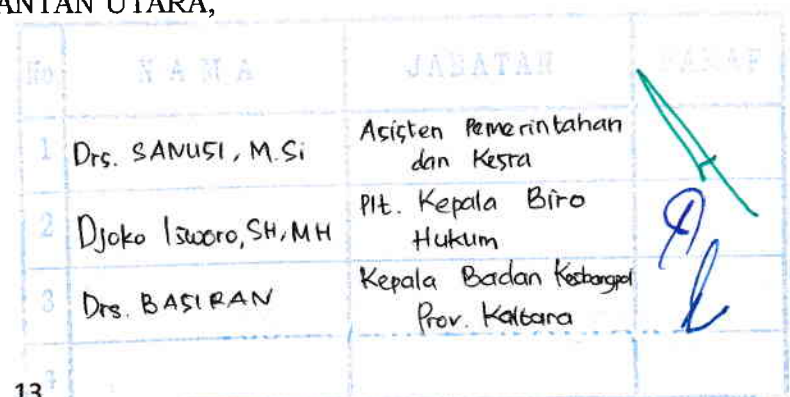 ANTAN UTARA,
No NAMA JABATAN PARAF
1 Drs. SANUSI, M.Si Asisten Pemerintahan
dan Kesra
2 Djoko Isworo, SH, MH Plt. Kepala Biro
Hukum
3 Drs. BASIRAN Kepala Badan Kesbangpol
Prov. Kaltara
4
13